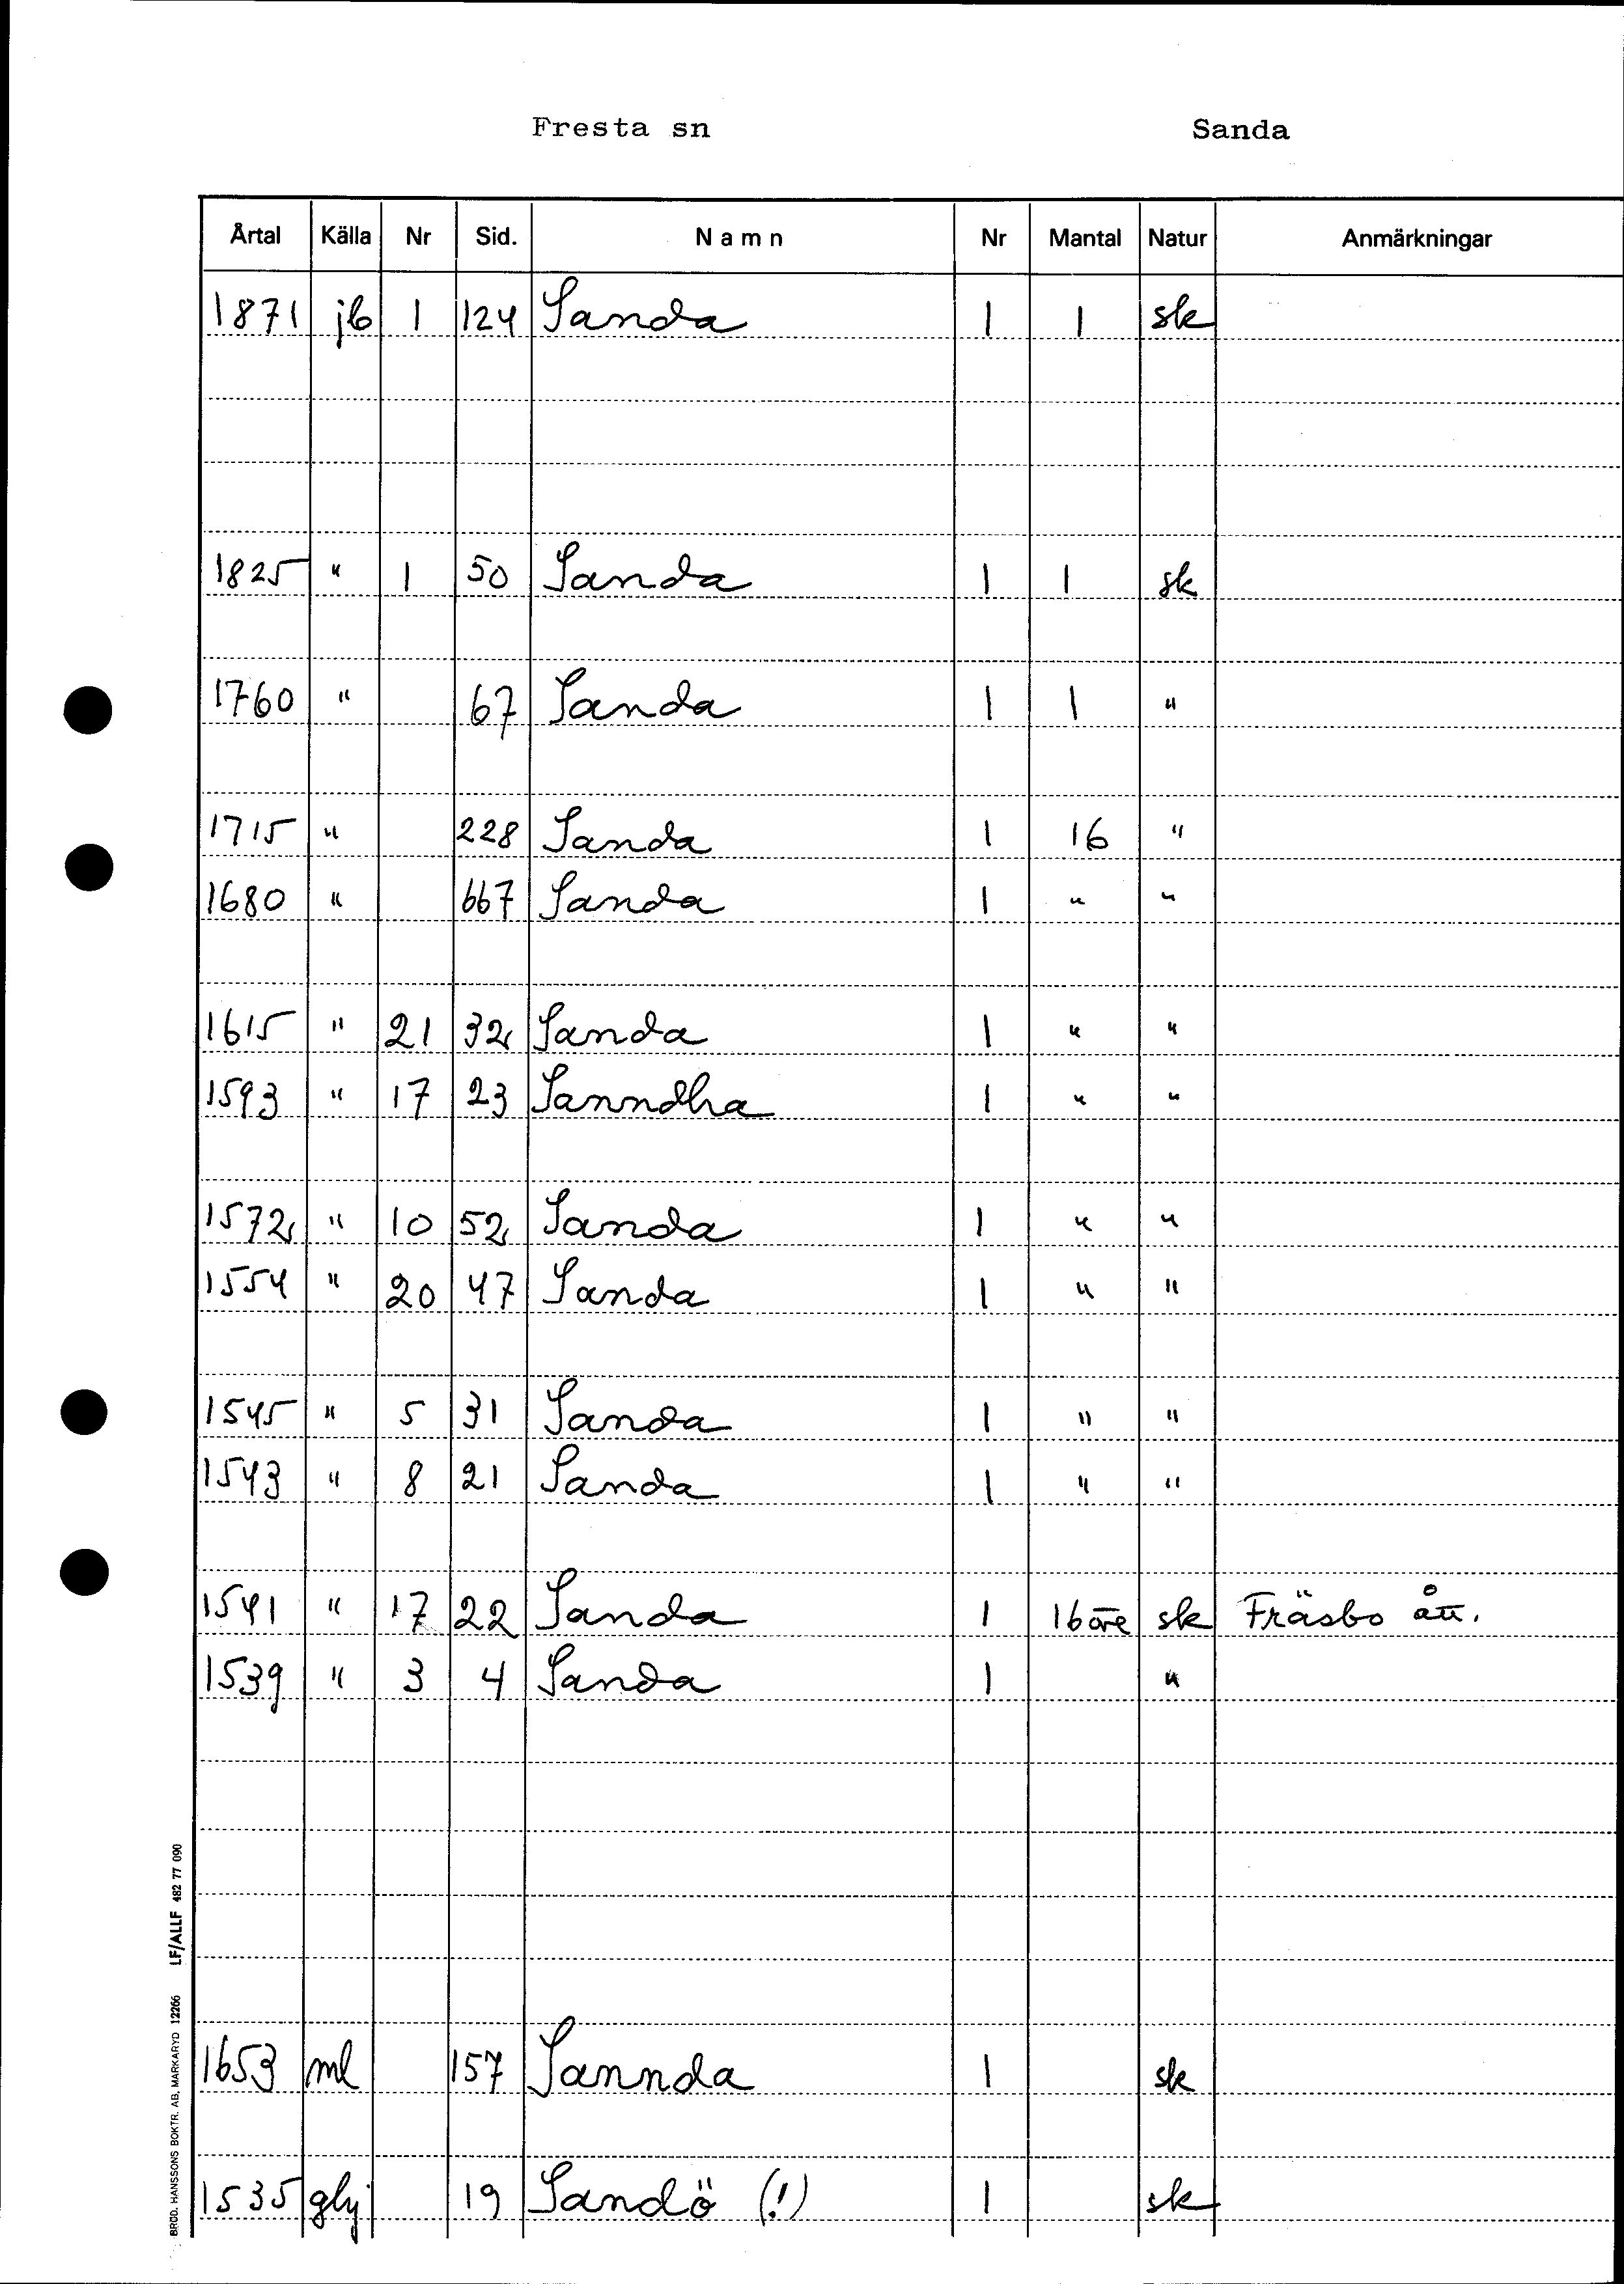 Fresta sn Sanda
Årtal Källa Nr Sid. Namn Nr Mantal Natur Anmärkningar
1871 jb 1 124 Sanda 1 1 sk
1825 " 1 50 Sanda 1 1 sk
1760 " 67 Sanda 1 1 "
1715 " 228 Sanda 1 16 "
1680 " 667 Sanda 1 " "
1615 " 21 32 Sanda 1 " "
1593 " 17 23 Sanndha 1 " "
1572 " 10 52 Sanda 1 " "
1554 " 20 47 Sanda 1 " "
1545 " 5 31 Sanda 1 " "
1543 " 8 21 Sanda 1 " "
1541 " 17 22 Sanda 1 16 öre sk Fräsbo ått.
1539 " 3 4 Sanda 1 "
1653 ml 157 Sannda 1 sk
1535 glj 19 Sandö (!) 1 sk
BRÖD. HANSSONS BOKTR. AB, MARKARYD 12266 LF/ALLF 482 77 090